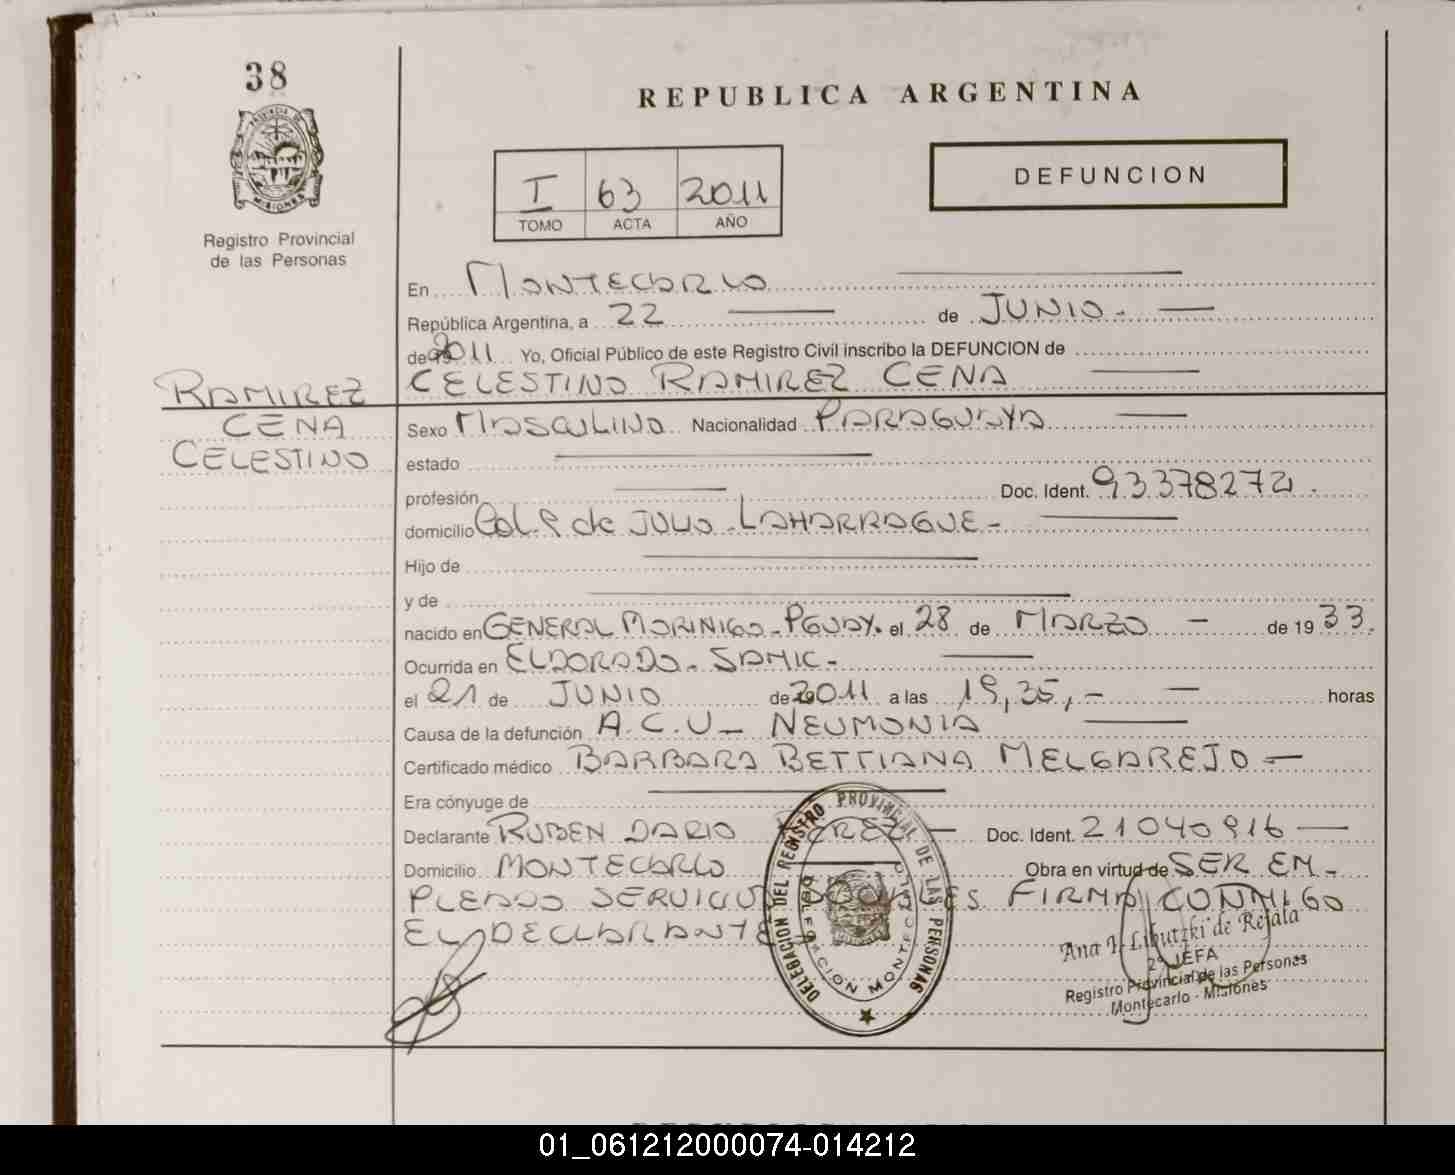 38
REPUBLICA ARGENTINA
PROVINCIA DE
MISIONES
I 63 2011
TOMO ACTA AÑO
DEFUNCION
Registro Provincial
de las Personas
En MONTECARLO
República Argentina, a 22 de JUNIO.
de 2011 Yo, Oficial Público de este Registro Civil inscribo la DEFUNCION de
CELESTINO RAMIREZ CENA
RAMIREZ
CENA
CELESTINO
Sexo MASCULINO Nacionalidad PARAGUAYA
estado
profesión Doc. Ident. 93378272.
domicilio Col. 9 de JULIO - LAHARRAGUE -
Hijo de
y de
nacido en GENERAL MORINIGO - PGUAY. el 28 de MARZO - de 1933.
Ocurrida en ELDORADO - SAMIC -
el 21 de JUNIO de 2011 a las 19,35,- horas
Causa de la defunción A.C.V - NEUMONIA
Certificado médico BARBARA BETTIANA MELGAREJO -
Era cónyuge de
Declarante RUBEN DARIO Doc. Ident. 21040916
Domicilio MONTECARLO Obra en virtud de SER EM-
PLEADO SERVICIOS SOCIALES FIRMA CONMIGO
EL DECLARANTE
DELEGACION DEL REGISTRO PROVINCIAL DE LAS PERSONAS
DELEGACION MONTECARLO
Ana I. Liputzki de Rejala
2º JEFA
Registro Provincial de las Personas
Montecarlo - Misiones
01_061212000074-014212